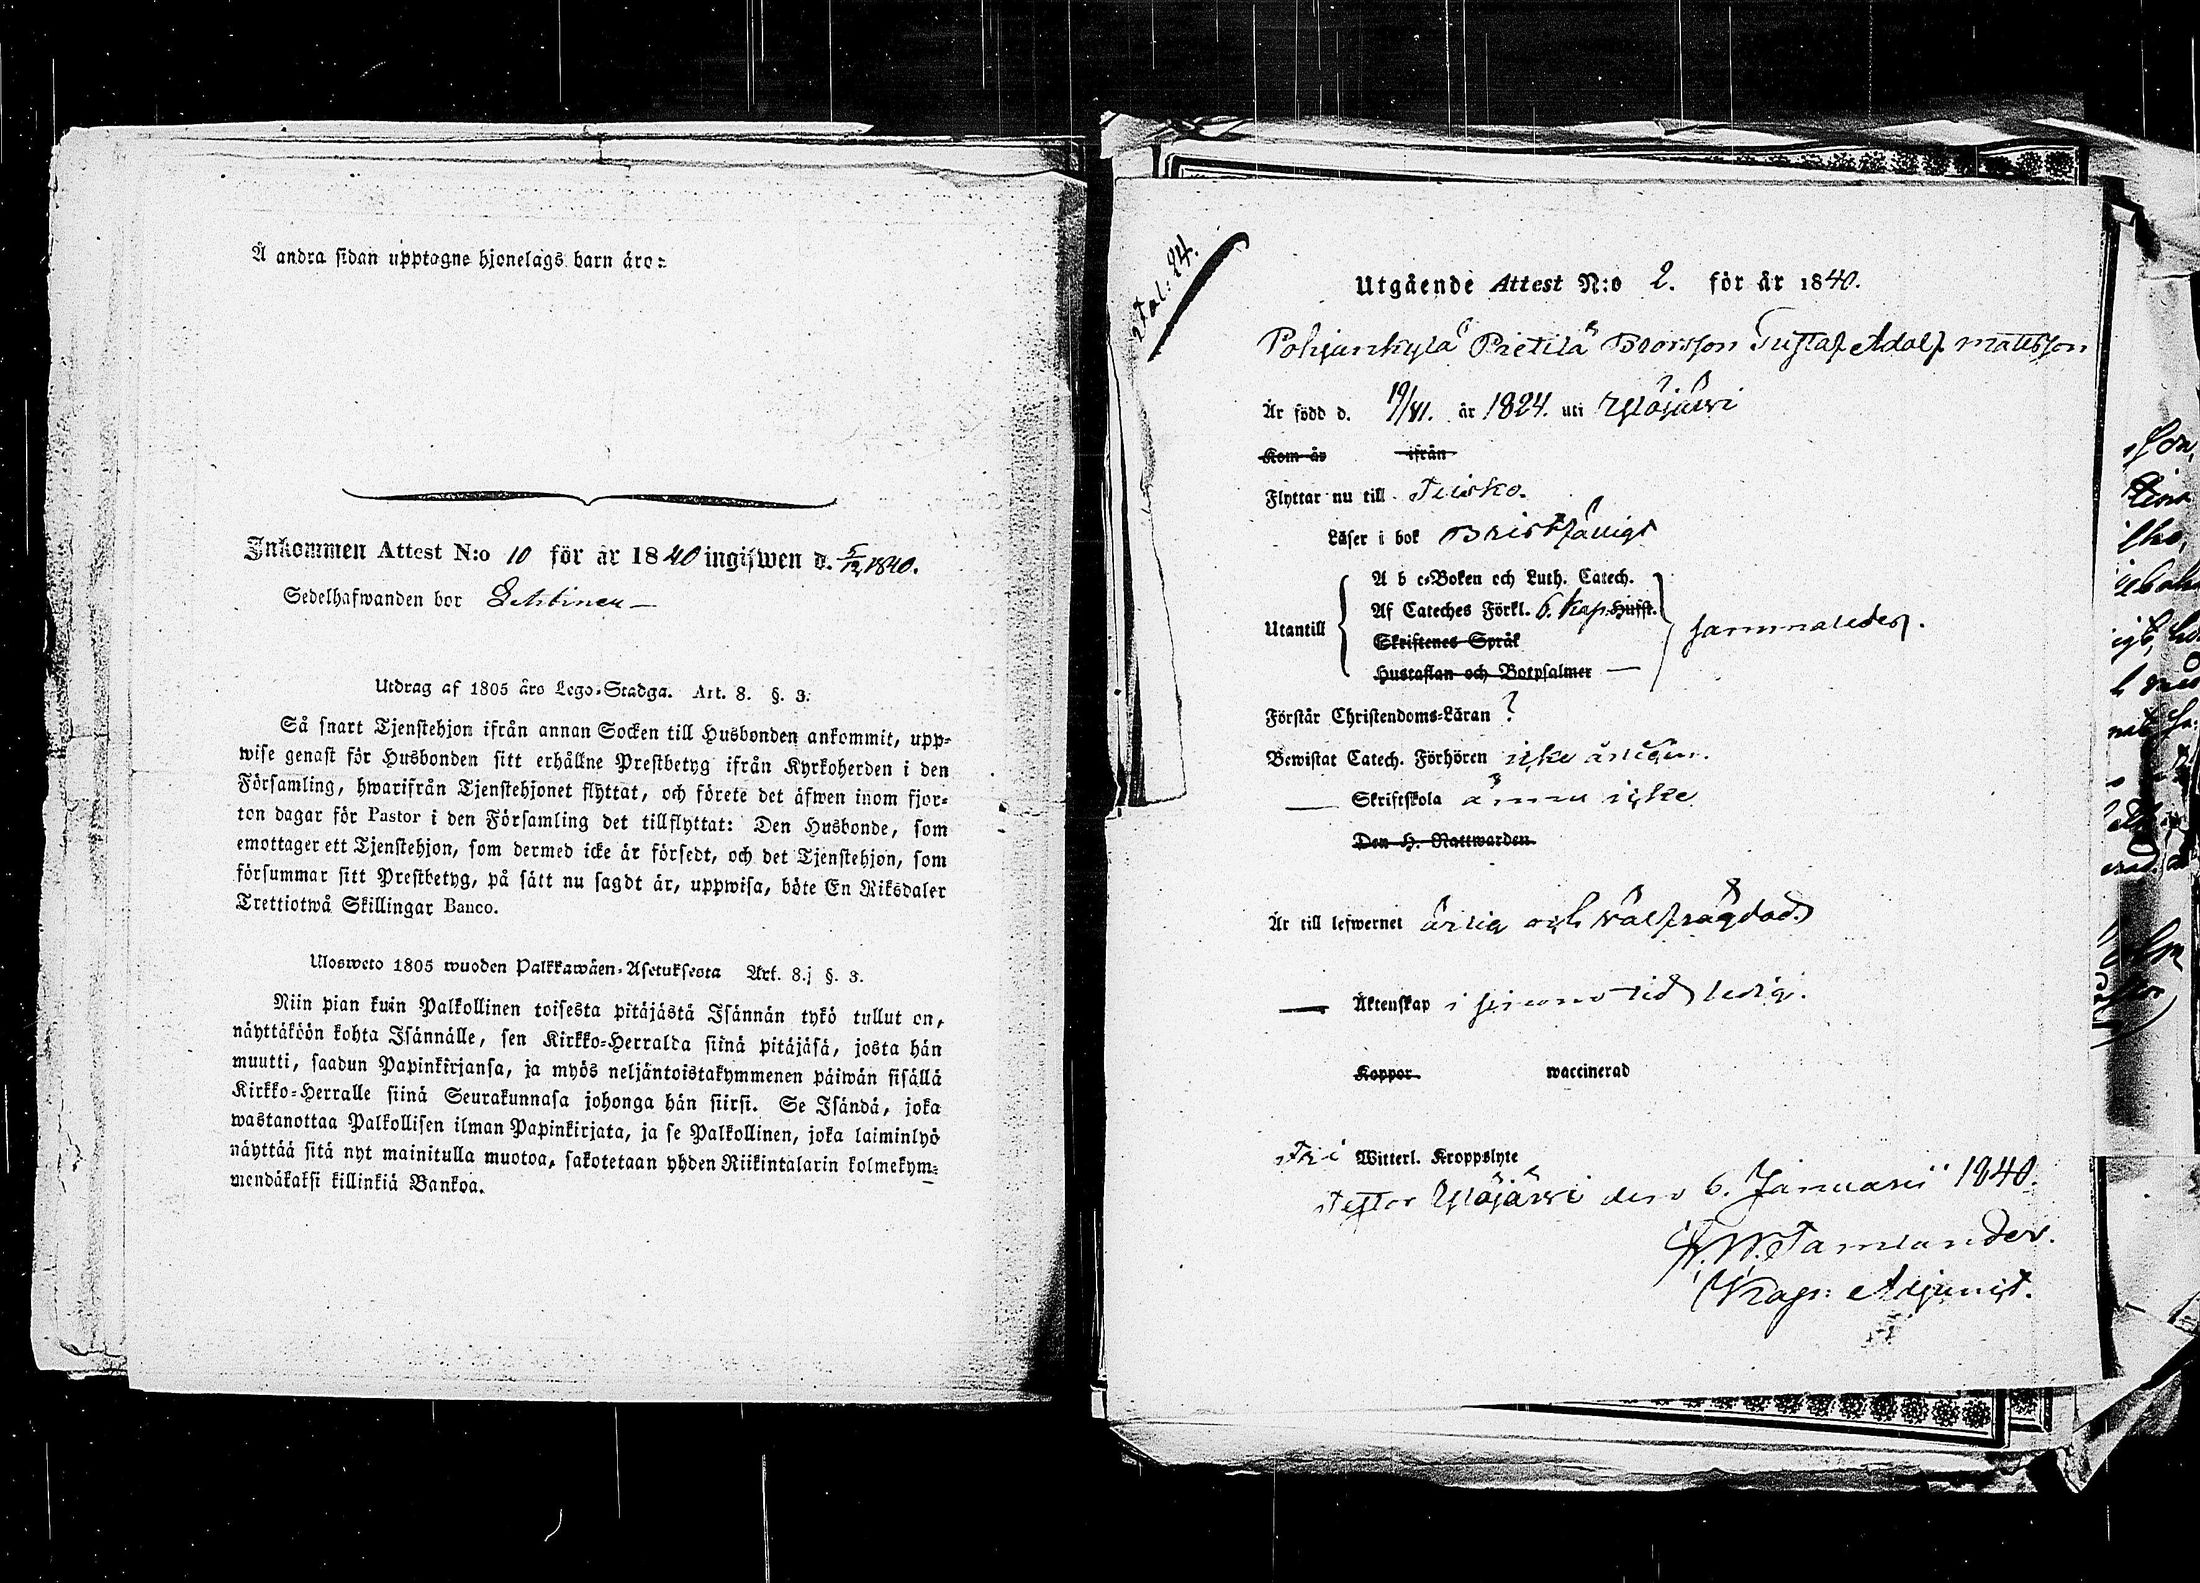 Å andra sidan upptagne hjonelags barn äro:
Inkommen Attest N:o 10 för år 1840 ingifwen d. 5/12 1840.
Sedelhafwanden bor Lehtinen —
Utdrag af 1805 års Lego-Stadga. Art. 8. §. 3.
Så snart Tjenstehjon ifrån annan Socken till Husbonden ankommit, upp-
wise genast för Husbonden sitt erhållne Prestbetyg ifrån Kyrkoherden i den
Församling, hwarifrån Tjenstehjonet flyttat, och förete det äfwen inom fjor-
ton dagar för Pastor i den Församling det tillflyttat: Den Husbonde, som
emottager ett Tjenstehjon, som dermed icke är försedt, och det Tjenstehjon, som
försummar sitt Prestbetyg, på sätt nu sagdt är, uppwisa, böte En Riksdaler
Trettiotwå Skillingar Banco.
Ulosweto 1805 wuoden Palkkawäen-Asetuksesta Art. 8.j §. 3.
Niin pian kuin Palkollinen toisesta pitäjästä Isännän tykö tullut on,
näyttäköön kohta Isännälle, sen Kirkko-Herralda siinä pitäjäsä, josta hän
muutti, saadun Papinkirjansa, ja myös neljäntoistakymmenen päiwän sisällä
Kirkko-Herralle siinä Seurakunnasa johonga hän siirsi. Se Isändä, joka
wastanottaa Palkollisen ilman Papinkirjata, ja se Palkollinen, joka laiminlyö
näyttää sitä nyt mainitulla muotoa, sakotetaan yhden Riikintalarin kolmekym-
mendäkaksi killinkiä Bankoa.
Utgående Attest N:o 2. för år 1840.
Pohjankylä Pietilä Brorsson Gustaf Adolf Mattsson
Är född d. 19/VI. år 1824. uti Ylöjärwi
Kom år ifrån
Flyttar nu till Teisko.
Läser i bok Bristfälligt
A b c-Boken och Luth. Catech.
Af Cateches Förkl. 6. Kap. Husst.
Utantill
Skriftenes Språk
sammaledes.
Hustaflan och Botpsalmer —
Förstår Christendoms-Läran ?
Bewistat Catech. Förhören icke årligen.
— Skriftskola ännu icke
Den H. Nattwarden
Är till lefwernet ärlig och wälfrägdad
— Äktenskap i sinom tid ledig.
Koppor waccinerad
Fri Witterl. Kroppslyte
Testor Ylöjärwi den 6. Januarii 1840.
Tamlander.
Adjunct.